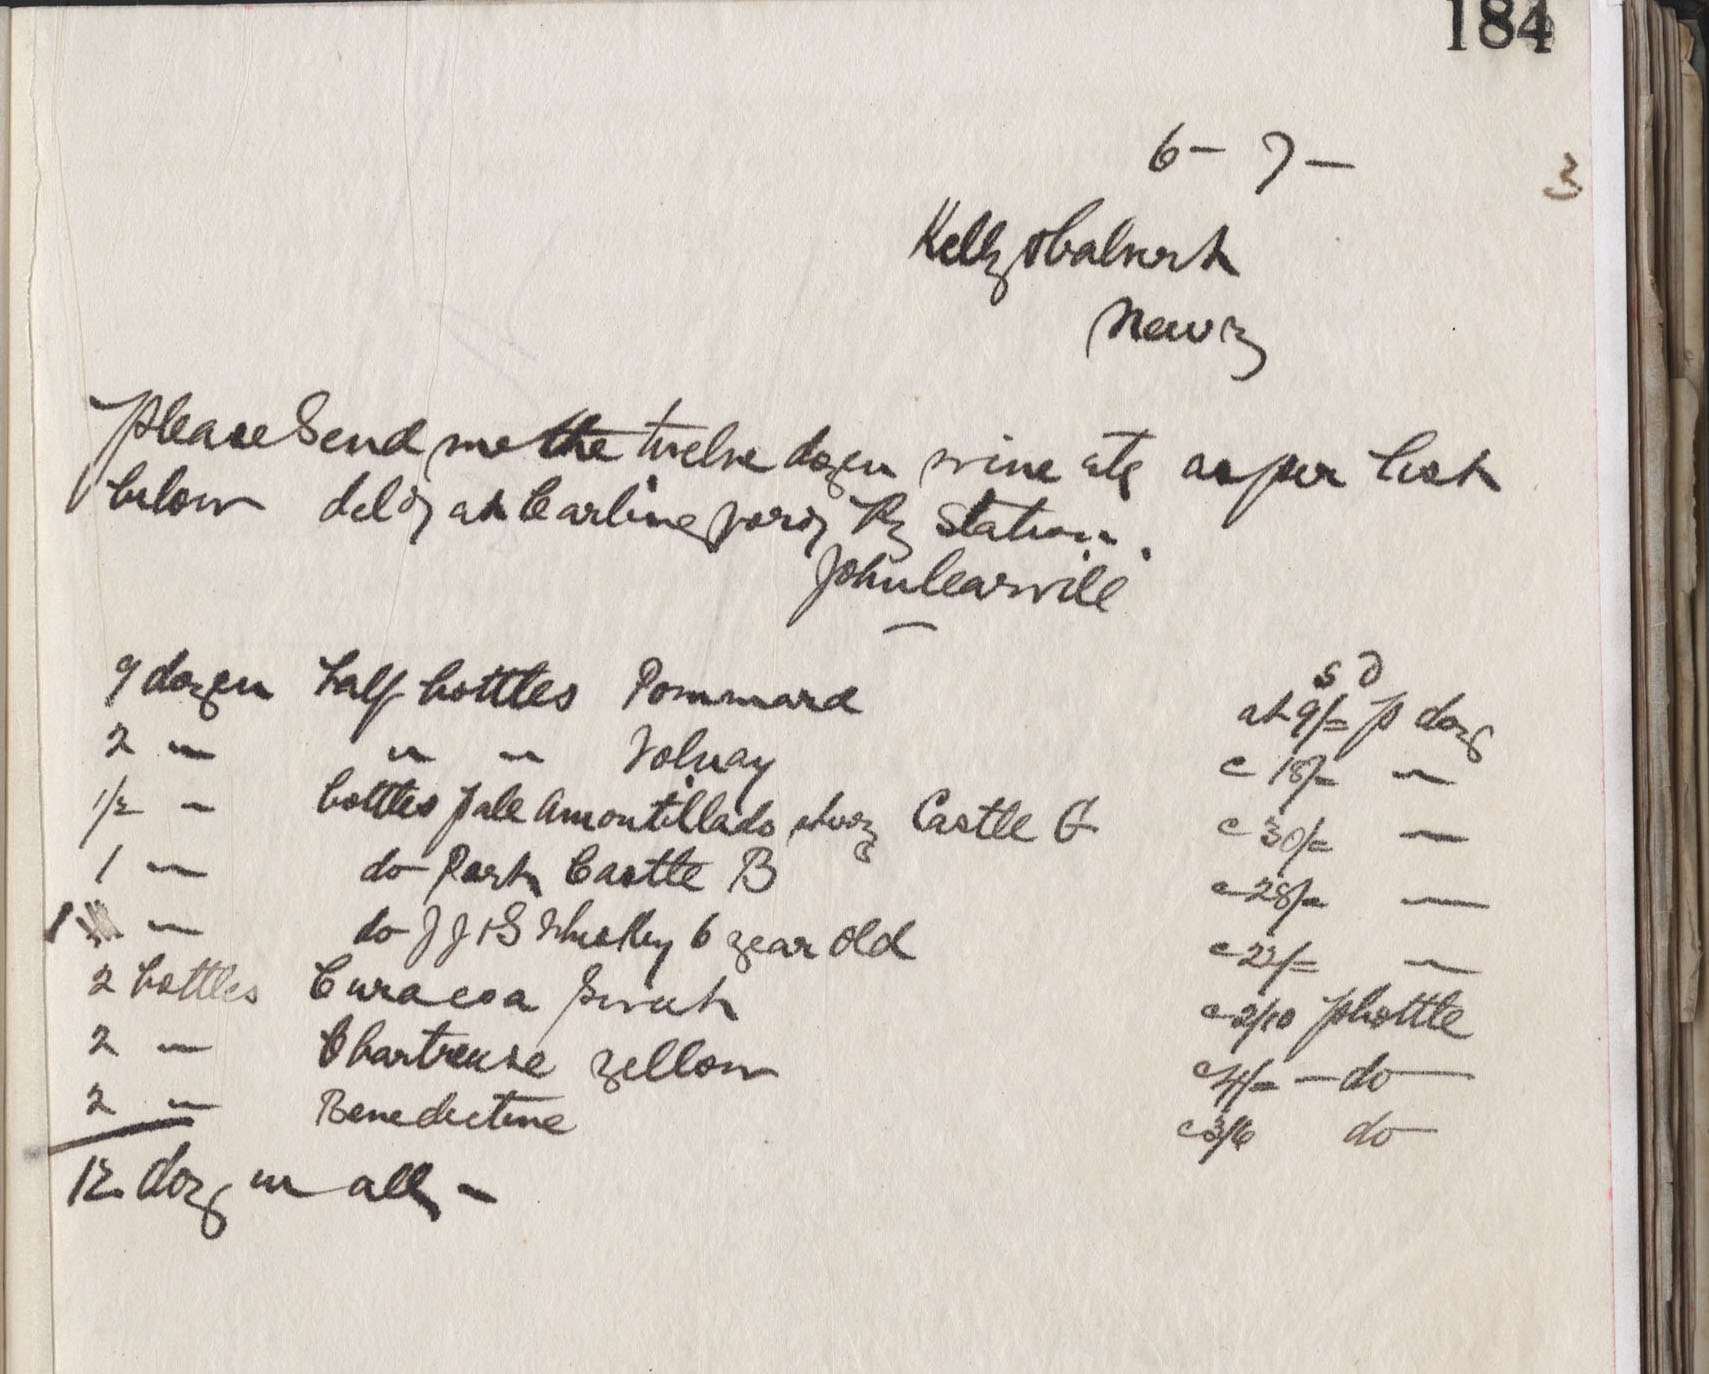 184
6 - 7 -
3
Kelly &
Newry
Please Send me the twelve dozen wine etc as per list
below deld at Carlingford Ry Station.
John Cearville
9 dozen half bottles Pommard at 9/= p doz
s d
2 " " " Volnay " 18/= "
1/2 " bottles pale Amontillado Sherry Castle G " 30/= "
1 " do Port Castle B " 28/= "
1 " do J J & S Whiskey 6 year old " 22/= "
2 bottles Curacoa " 2/10 p bottle
2 " Chartreuse yellow " 4/= - do -
2 " Benedictine " 3/6 do
12 doz in all -